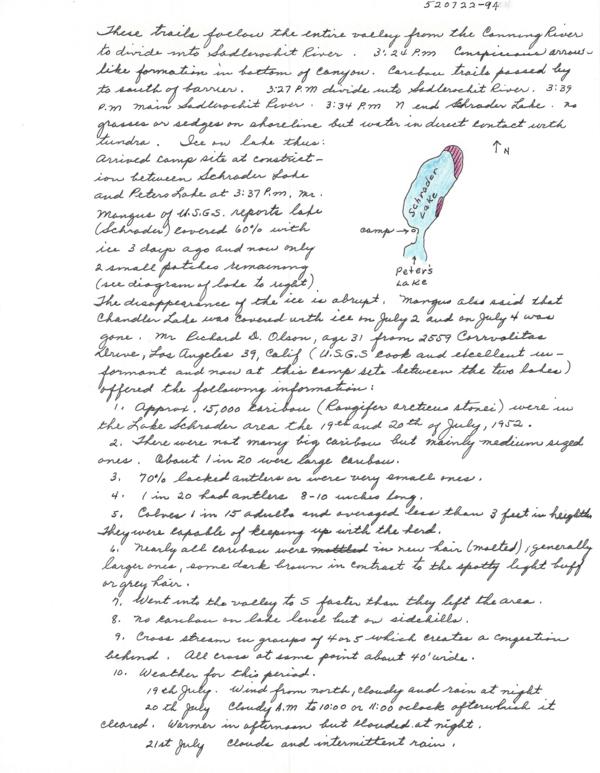 520722-94
These trails follow the entire valley from the Canning River
to divide into Sadlerochit River. 3:24 P.M Conspicuous arrow-
like formation in bottom of canyon. Caribou trails passed by
to south of barrier. 3:27 P.M divide into Sadlerochit River. 3:39
P.M main Sadlerochit River. 3:34 P.M N end Schrader Lake. no
grasses or sedges on shoreline but water in direct contact with
tundra. Ice on lake thus:
Arrived camp site at constrict-
ion between Schrader Lake
and Peters Lake at 3:37 P.M. Mr.
Mangus of U.S.G.S. reports lake
(Schrader) covered 60% with
ice 3 days ago and now only
2 small patches remaining
(see diagram of lake to right)
↑N
Schrader
Lake
camp→
↑
Peter's
Lake
The disappearance of the ice is abrupt. Mangus also said that
Chandler Lake was covered with ice on July 2 and on July 4 was
gone. Mr Richard D. Olson, age 31 from 2559
Drive, Los Angeles 39, Calif (U.S.G.S cook and excellent in-
formant and now at this camp site between the two lakes)
offered the following information:
1. Approx. 15,000 caribou (Rangifer arcticus stonei) were in
the Lake Schrader area the 19th and 20th of July, 1952.
2. There were not many big caribou but mainly medium sized
ones. About 1 in 20 were large caribou.
3. 70% lacked antlers or were very small ones.
4. 1 in 20 had antlers 8-10 inches long.
5. Calves 1 in 15 adults and averaged less than 3 feet in height.
They were capable of keeping up with the herd.
6. Nearly all caribou were mottled in new hair (molted), generally
larger ones, some dark brown in contrast to the spotty light buff
or grey hair.
7. Went into the valley to S faster than they left the area.
8. No caribou on lake level but on sidehills.
9. Cross stream in groups of 4 or 5 which creates a congestion
behind. All cross at same point about 40' wide.
10. Weather for this period.
19th July. Wind from north, cloudy and rain at night
20th July Cloudy A.M to 10:00 or 11:00 oclock afterwhich it
cleared. Warmer in afternoon but clouded at night.
21st July clouds and intermittent rain.